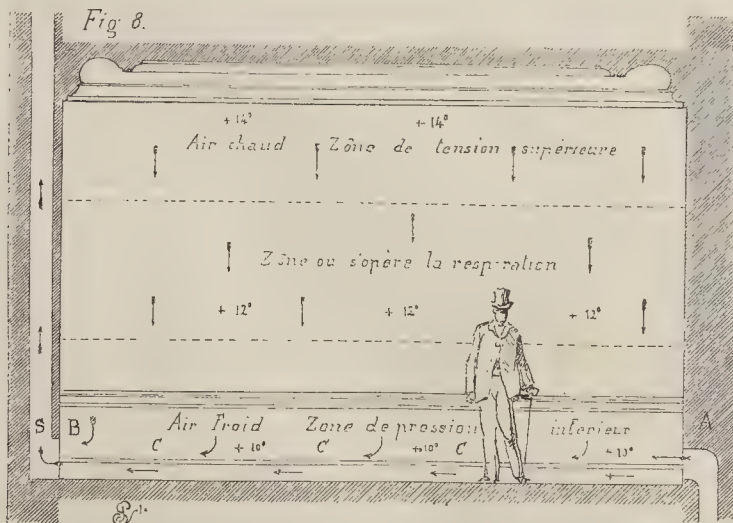 Fig 8.
+ 14° + 14°
Air chaud Zône de tension supérieure
Zône ou s'opère la respiration
+ 12° + 12° + 12°
S B Air Froid Zone de pression inferieur A
C + 10° C + 10° C + 10°